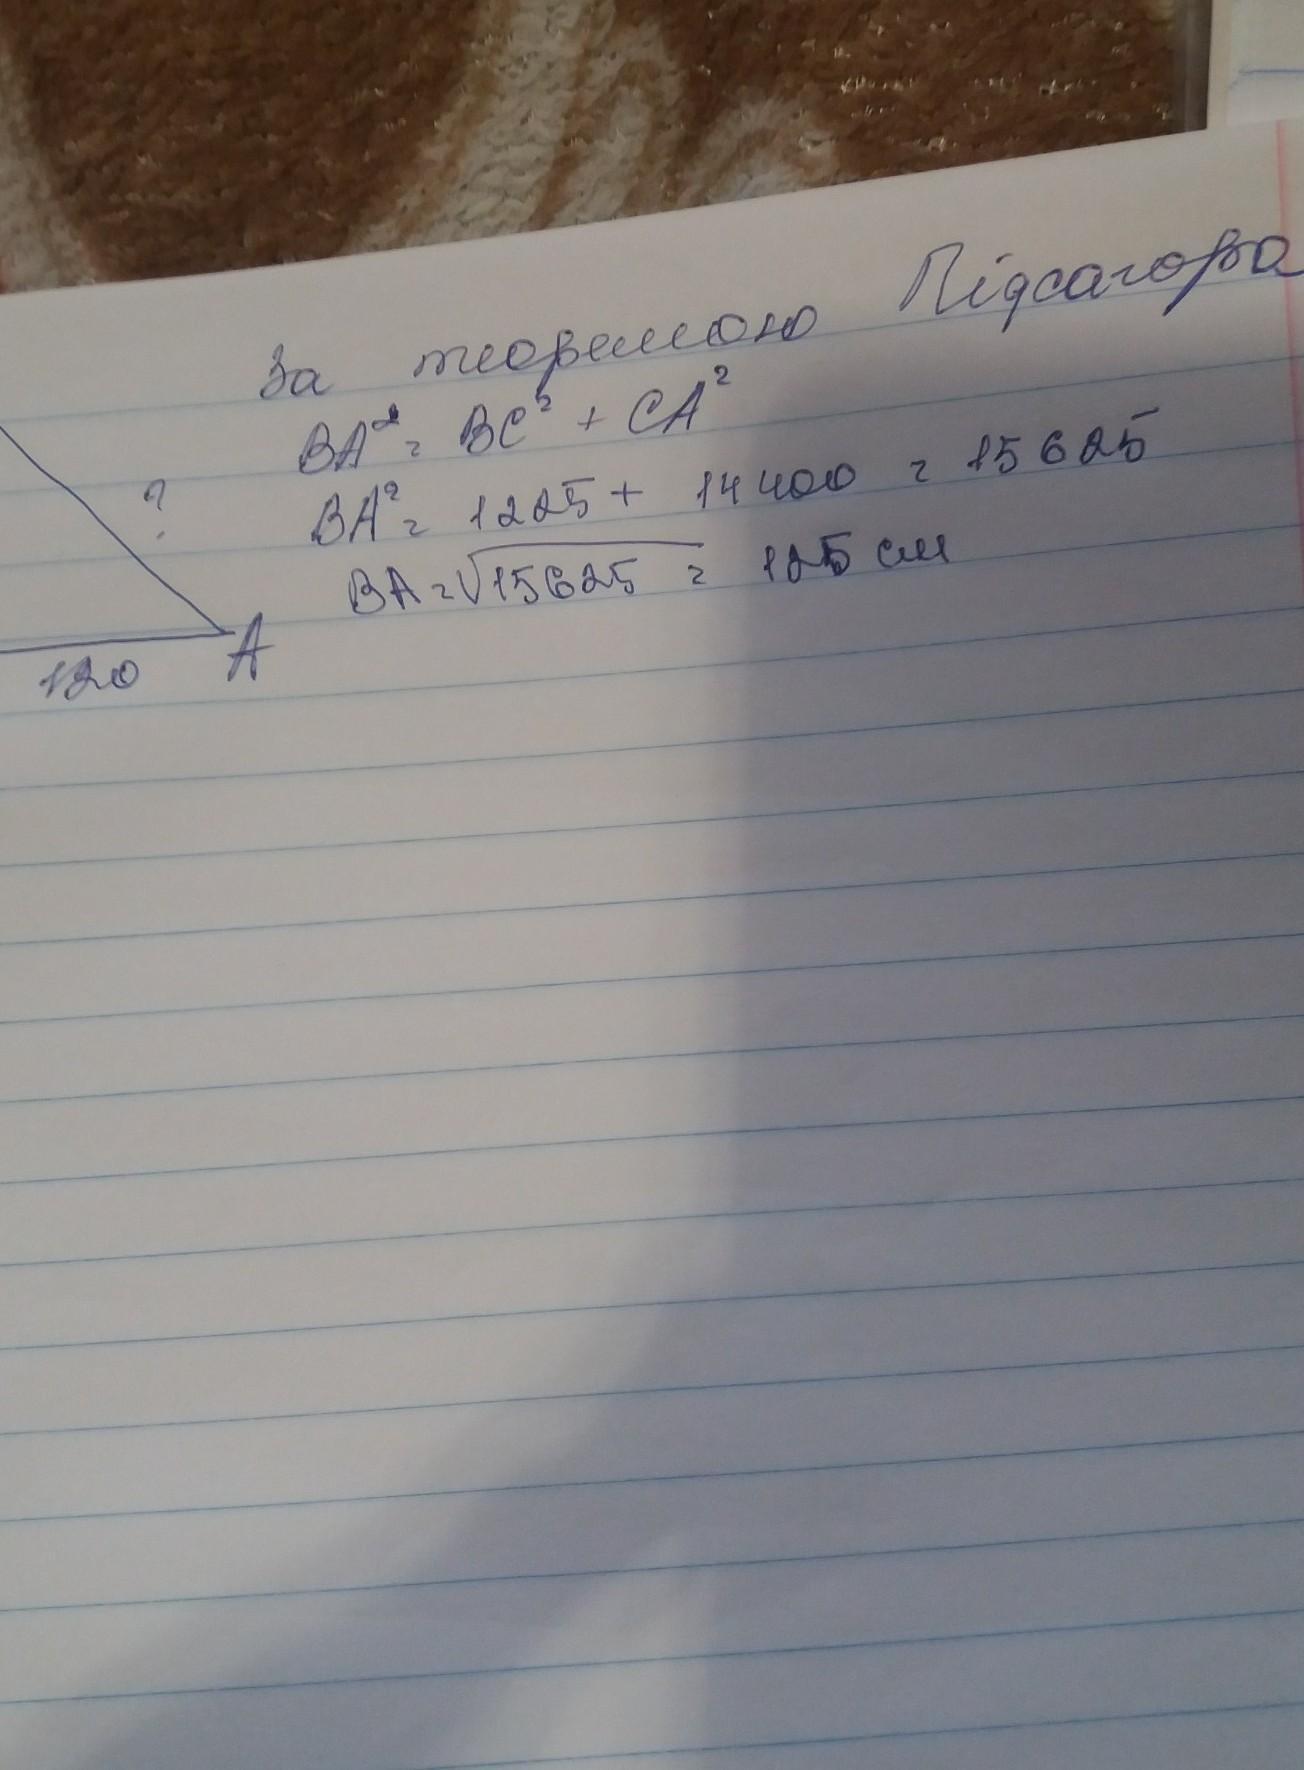 За теоремою Підсагора
BA² = BC² + CA²
BA² = 1225 + 14400 = 15625
BA = √15625 = 125 см
?
120
A